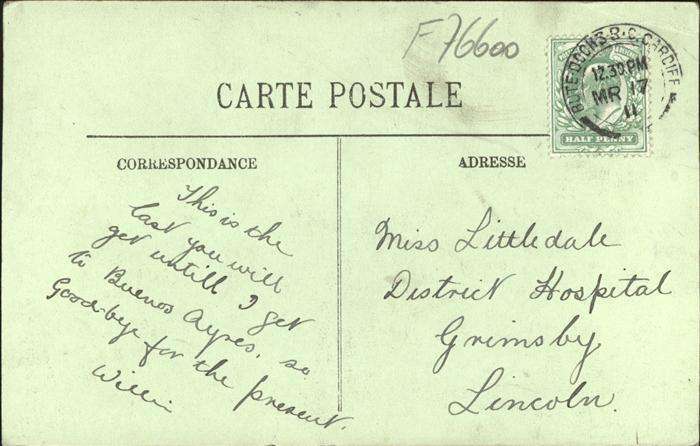 F76600
BUTE DOCKS B.O. CARDIFF
12.30PM
MR 17
11
HALF PENNY
CARTE POSTALE
CORRESPONDANCE
ADRESSE
This is the
last you will
get untill I get
to Buenos Ayres, so
Good-bye for the present.
Willie
Miss Littledale
District Hospital
Grimsby
Lincoln.